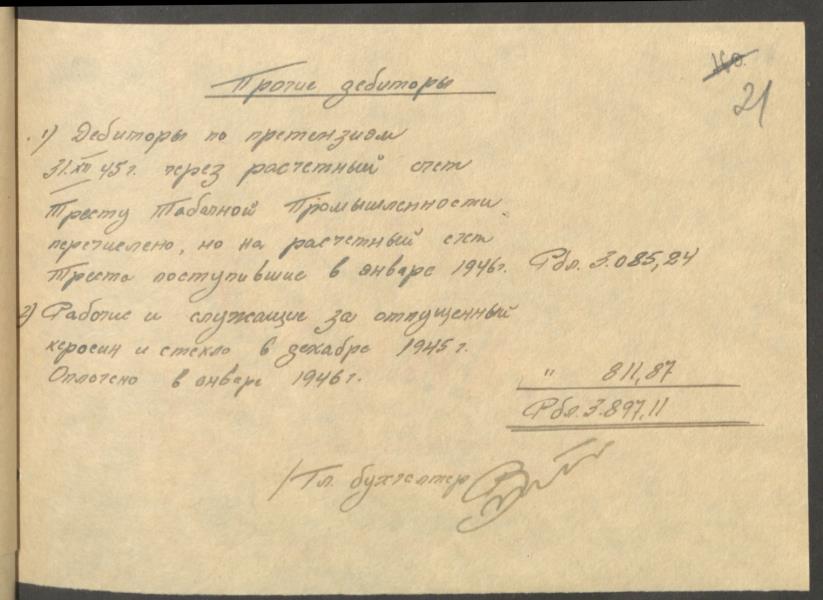 21
Прочие дебиторы
1) Дебиторы по претензиям
31.XII 45 г. через расчетный счет
Тресту Табачной Промышленности
перечислено, но на расчетный счет
Треста поступившие в январе 1946 г. Рбл. 3.085,24
2) Рабочие и служащие за отпущенный
керосин и стекло в декабре 1945 г.
Оплочено в январе 1946 г. " 811,87
Рбл. 3.897,11
/Гл. бухгалтер